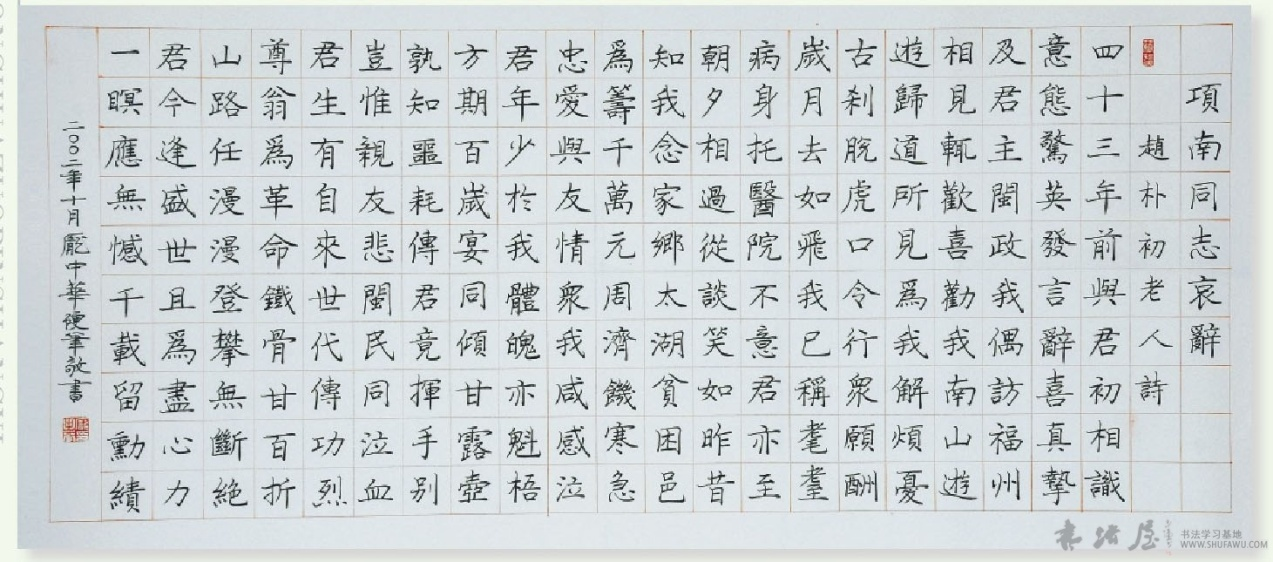 項南同志哀辭
趙朴初老人詩
四十三年前與君初相識
意態驚英發言辭喜真摯
及君主閩政我偶訪福州
相見輒歡喜勸我南山遊
遊歸道所見為我解煩憂
古刹脫虎口令行衆願酬
歲月去如飛我已稱耄耋
病身托醫院不意君亦至
朝夕相過從談笑如昨昔
知我念家鄉太湖貧困邑
為籌千萬元周濟饑寒急
忠愛與友情衆我咸感泣
君年少於我體魄亦魁梧
方期百歲宴同傾甘露壺
孰知噩耗傳君竟揮手别
豈惟親友悲閩民同泣血
君生有自來世代傳功烈
尊翁為革命鐵骨甘百折
山路任漫漫登攀無斷絶
君今逢盛世且為盡心力
一瞑應無憾千載留勳績
二〇〇二年十月龐中華硬筆敬書
书法屋
书法学习基地
WWW.SHUFAWU.COM